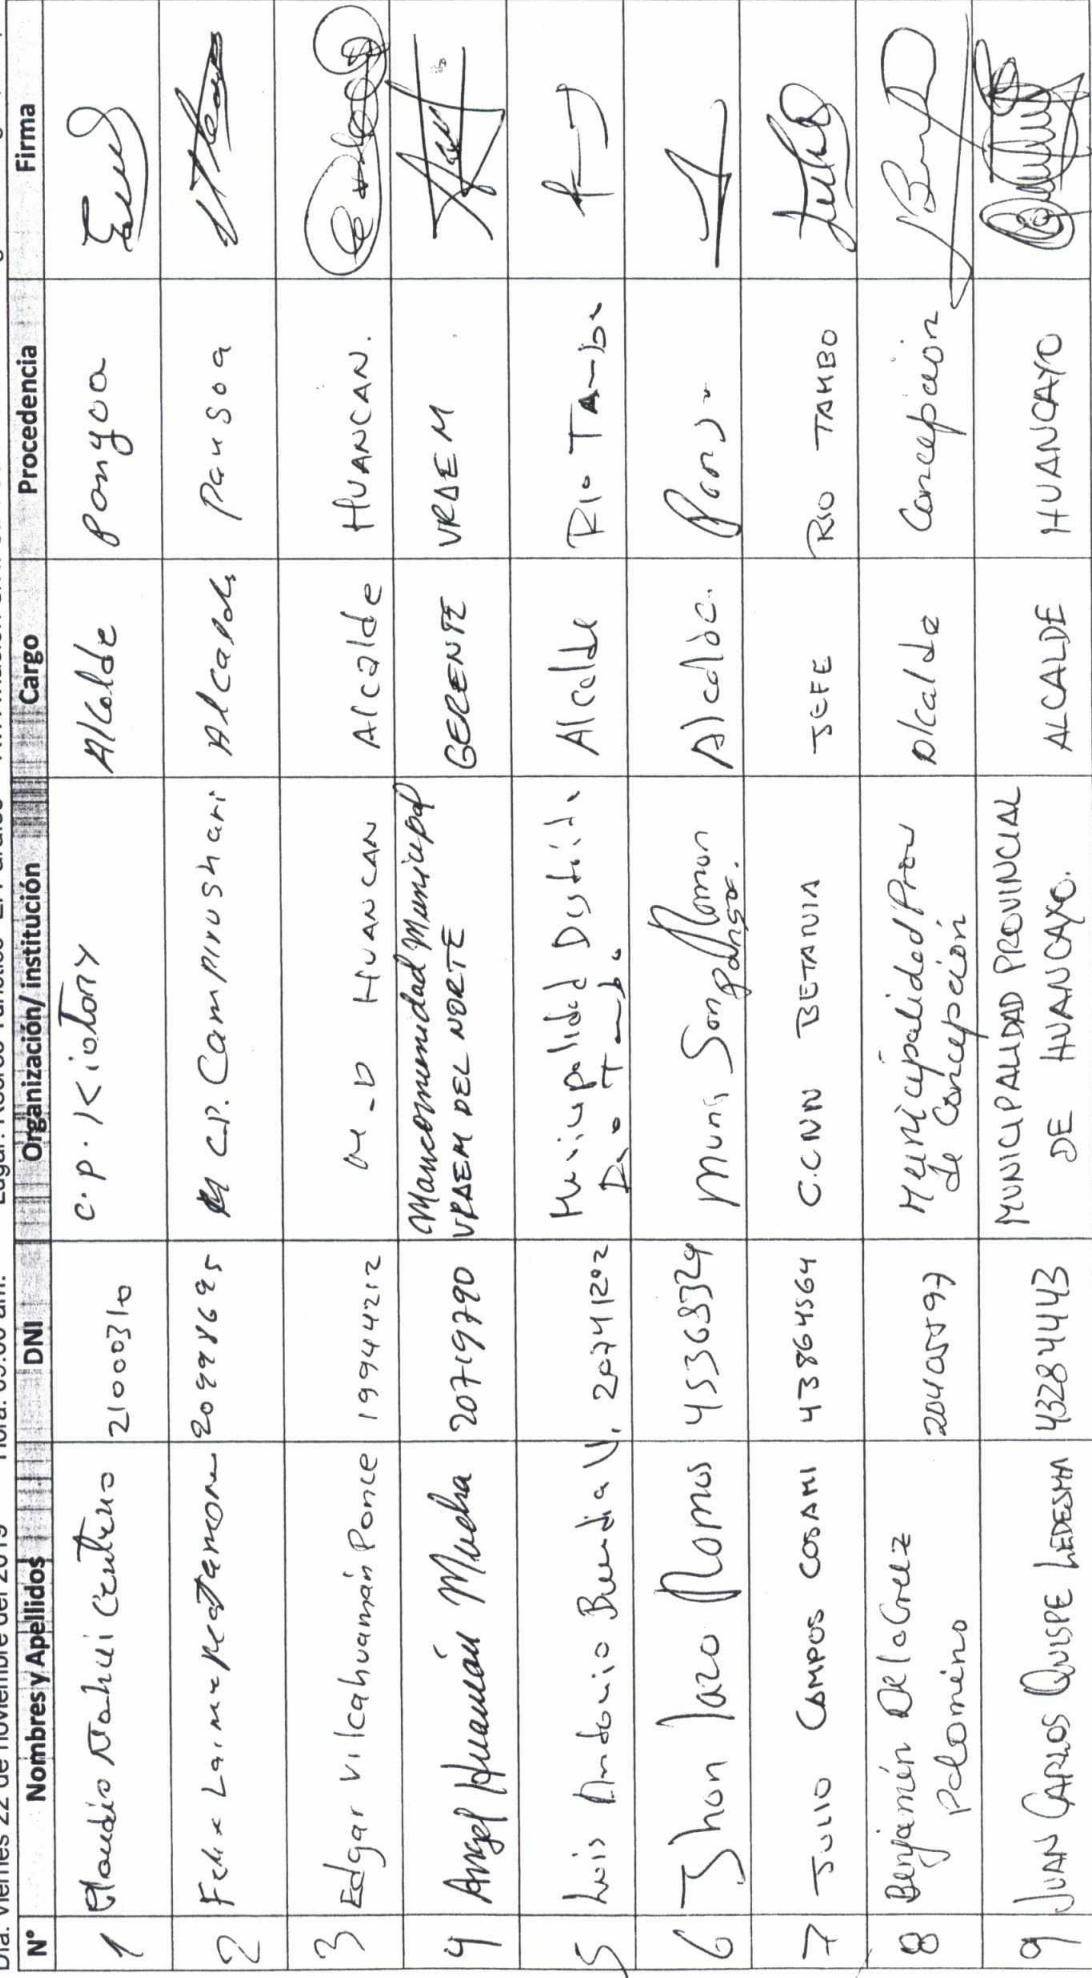 Día: Viernes 22 de noviembre del 2019 Hora: 09:00 am. Lugar: Recreo Turístico
N° Nombres y Apellidos DNI Organización/ institución Cargo Procedencia Firma
1 Claudio Ñahui Centeno 21000310 C.P. Kiatary Alcalde Pangoa
2 Felix 20998695 M C.P. Campirushari Pangoa
3 Edgar Vilcahuamán Ponce 19944212 M_D HUANCAN Alcalde HUANCAN.
4 Angel Huamán Mucha 20719790 Mancomunidad Municipal
VRAEM DEL NORTE GERENTE VRAEM
5 Luis Antonio Buendia V. 20741202 Municipalidad Distrital
Rio Tambo Alcalde RIO TAMBO
6 Jhon Lazo Ramos 45368324 Muni San Ramon
Pangoa. Alcalde.
7 JULIO CAMPOS COSAMI 43864564 C.CNN BETANIA JEFE RIO TAMBO
8 Benjamín De la Cruz
Palomino 20405597 Municipalidad Prov
de Concepción Alcalde Concepción
9 JUAN CARLOS QUISPE LEDESMA 43284443 MUNICIPALIDAD PROVINCIAL
DE HUANCAYO. ALCALDE HUANCAYO